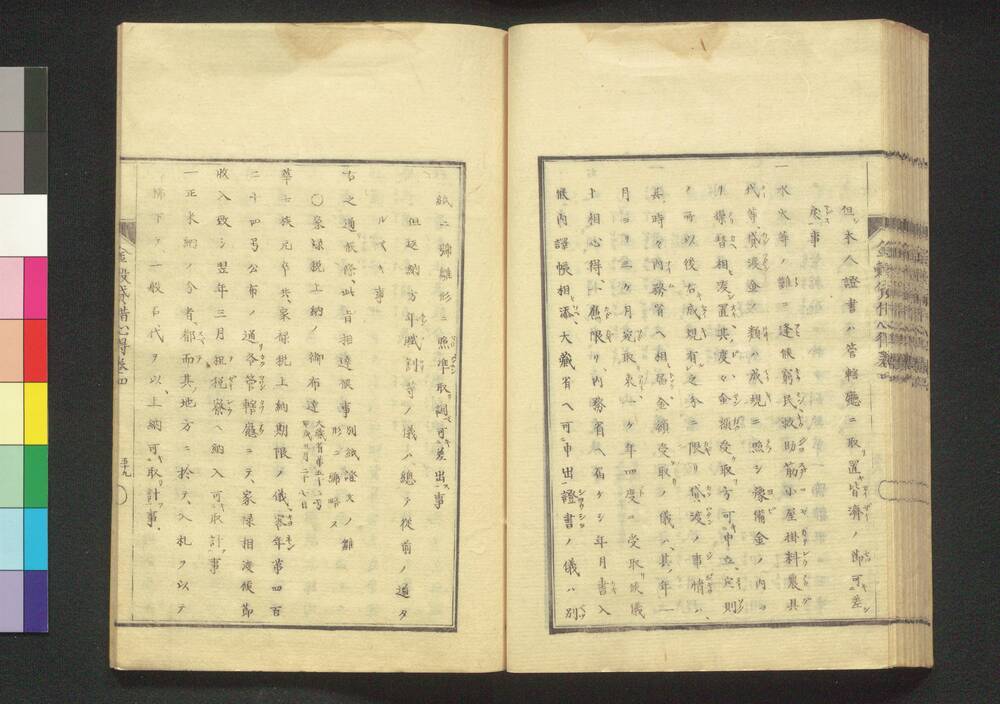 但シ本人證書ハ管轄廳ニ取置皆濟ノ節可差
戻事
一水火等ノ難ニ逢候窮民救助筋小屋掛料農具
代等貸渡金ノ類ハ成規ニ照シ豫備金ノ内ヨ
リ操替相渡置其度々金額受取方可申立定則
ノ所以後右成規有之分ニ限リ貸渡ノ事情ハ
其時々内務省ヘ相届金額受取ノ儀ハ其ノ年一
月ヨリ三ケ月宛取束一ケ年四度ニ受取候儀
ト相心得不應限リ内務省ヘ届タシ年月書入
候内譯帳相添大藏省ヘ可申出證書ノ儀ハ別
紙二號雛形ニ照準取調可差出事
但返納方年賦割等ノ儀ハ總テ從前ノ通タ
ルヘキ事
右之通候條此旨相達候事 別紙證文ノ雛形二號略ス
〇家祿税上納ノ御布達
華士族元卒共家祿税上納期限ノ儀客年第四百
二十四号公布ノ通各管轄廳ニテ家祿相渡候節
收入致シ翌年三月租税寮ヘ納入可取計事
一正米納ノ分者都而其地方ニ於テ入札ヲ以テ
拂下ケ一般石代ヲ以上納可取計事
金穀貸借心得巻四